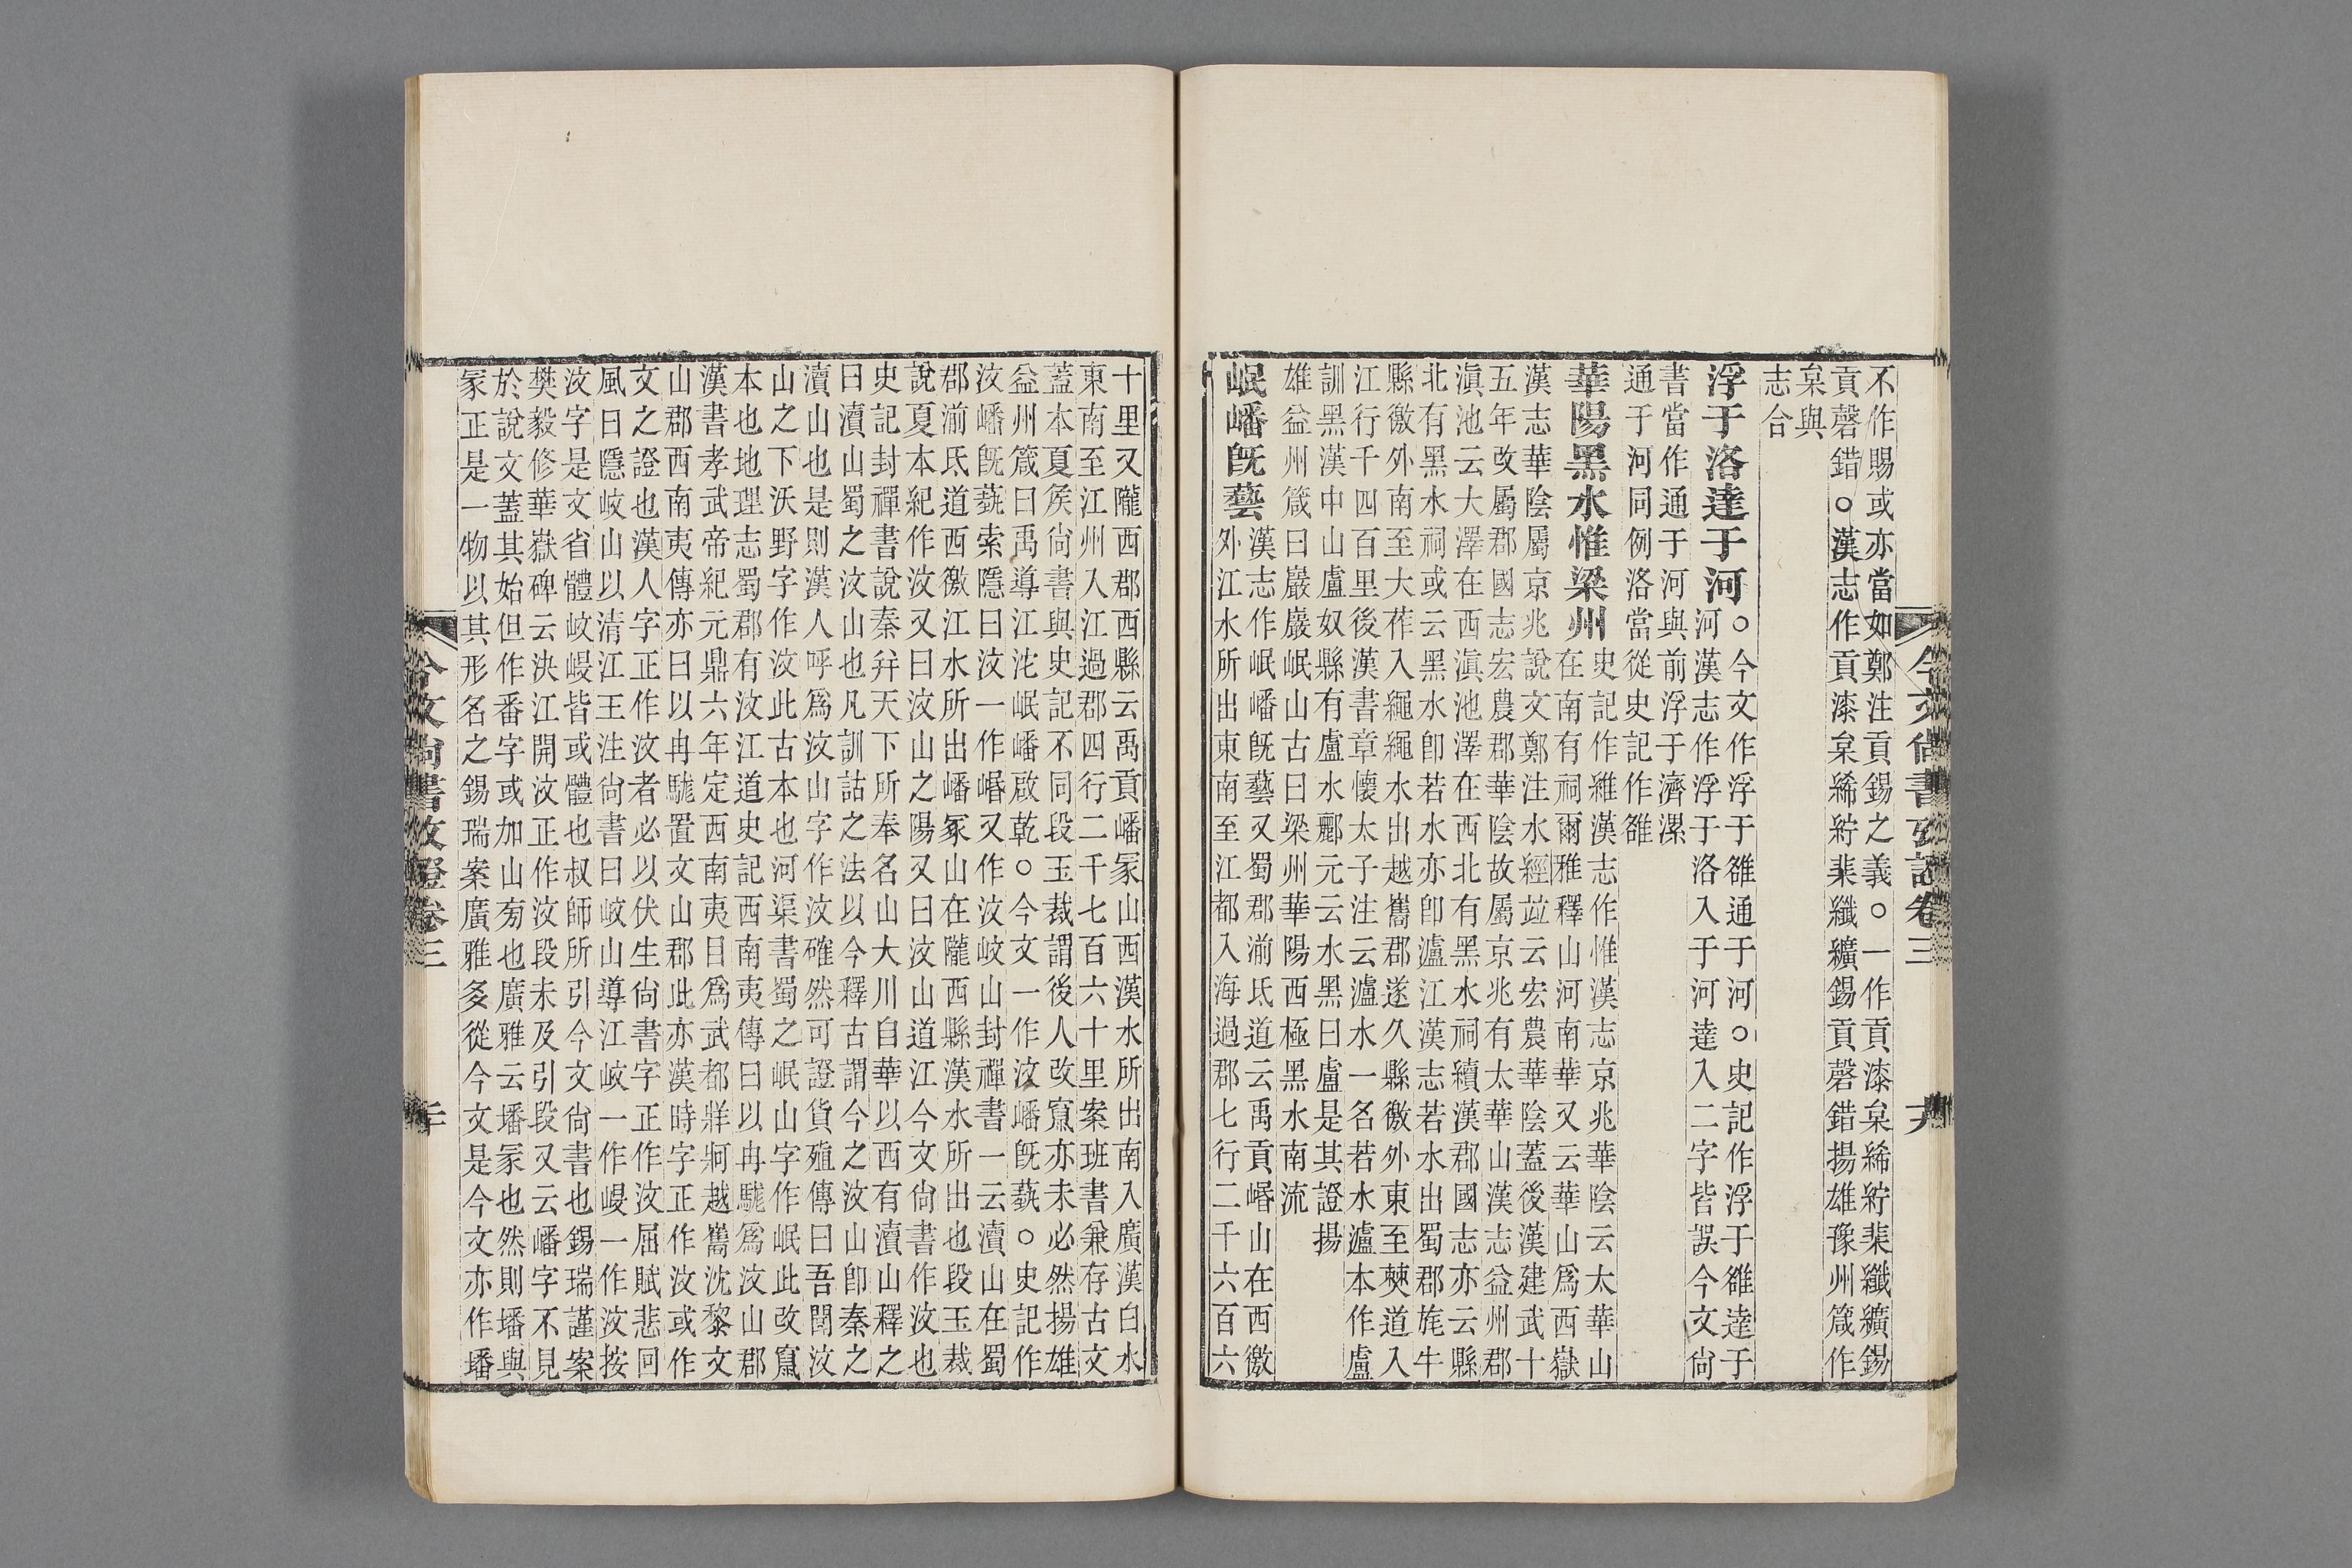 不作賜或亦當如鄭注貢錫之義○一作貢漆枲絺紵棐纖纊錫
貢磬錯○漢志作貢漆枲絺紵棐纖纊錫貢磬錯揚雄豫州箴作
枲與
志合
浮于洛達于河
○今文作浮于雒通于河○史記作浮于雒達于
河漢志作浮于洛入于河達入二字皆誤今文尙
書當作通于河與前浮于濟漯
通于河同例洛當從史記作雒
華陽黑水惟梁州
史記作維漢志作惟漢志京兆華陰云太華山
在南有祠爾雅釋山河南華又云華山爲西嶽
漢志華陰屬京兆說文鄭注水經竝云宏農華陰蓋後漢建武十
五年改屬郡國志宏農郡華陰故屬京兆有太華山漢志益州郡
滇池云大澤在西滇池澤在西北有黑水祠續漢郡國志亦云縣
北有黑水祠或云黑水卽若水亦卽瀘江漢志若水出蜀郡旄牛
縣徼外南至大莋入繩繩水出越巂郡遂久縣徼外東至僰道入
江行千四百里後漢書章懷太子注云瀘水一名若水瀘本作盧
訓黑漢中山盧奴縣有盧水酈元云水黑曰盧是其證揚
雄益州箴曰巖巖岷山古曰梁州華陽西極黑水南流
岷嶓旣藝
漢志作岷嶓旣藝又蜀郡湔氐道云禹貢崏山在西徼
外江水所出東南至江都入海過郡七行二千六百六
今文尙書攷證卷三
十九
十里又隴西郡西縣云禹貢嶓冢山西漢水所出南入廣漢白水
東南至江州入江過郡四行二千七百六十里案班書兼存古文
蓋本夏侯尙書與史記不同段玉裁謂後人改竄亦未必然揚雄
益州箴曰禹導江沱岷嶓啟乾○今文一作汶嶓旣蓺○史記作
汶嶓旣蓺索隱曰汶一作崏又作汶岐山封禪書一云瀆山在蜀
郡湔氐道西徼江水所出嶓冢山在隴西縣漢水所出也段玉裁
說夏本紀作汶又曰汶山之陽又曰汶山道江今文尙書作汶也
史記封禪書說秦幷天下所奉名山大川自華以西有瀆山釋之
曰瀆山蜀之汶山也凡訓詁之法以今釋古謂今之汶山卽秦之
瀆山也是則漢人呼爲汶山字作汶確然可證貨殖傳曰吾聞汶
山之下沃野字作汶此古本也河渠書蜀之岷山字作岷此改竄
本也地理志蜀郡有汶江道史記西南夷傳曰以冉駹爲汶山郡
漢書孝武帝紀元鼎六年定西南夷目爲武都牂牁越巂沈黎文
山郡西南夷傳亦曰以冉駹置文山郡此亦漢時字正作汶或作
文之證也漢人字正作汶者必以伏生尙書字正作汶屈賦悲回
風曰隱岐山以清江王注尙書曰岐山導江岐一作崏一作汶按
汶字是文省體岐崏皆或體也叔師所引今文尙書也錫瑞謹案
樊毅修華嶽碑云決江開汶正作汶段未及引段又云嶓字不見
於說文蓋其始但作番字或加山㫄也廣雅云墦冢也然則墦與
冢正是一物以其形名之錫瑞案廣雅多從今文是今文亦作墦
今文尙書攷證卷三
二十